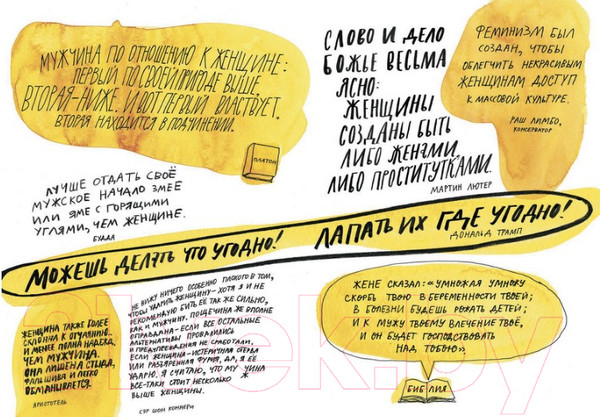 МУЖЧИНА ПО ОТНОШЕНИЮ К ЖЕНЩИНЕ:
ПЕРВЫЙ ПО СВОЕЙ ПРИРОДЕ ВЫШЕ,
ВТОРАЯ-НИЖЕ. И ВОТ ПЕРВЫЙ ВЛАСТВУЕТ,
ВТОРАЯ НАХОДИТСЯ В ПОДЧИНЕНИИ.
ПЛАТОН
СЛОВО И ДЕЛО
БОЖЬЕ ВЕСЬМА
ЯСНО:
ЖЕНЩИНЫ
СОЗДАНЫ БЫТЬ
ЛИБО ЖЕНАМИ,
ЛИБО ПРОСТИТУТКАМИ.
МАРТИН ЛЮТЕР
ФЕМИНИЗМ БЫЛ
СОЗДАН, ЧТОБЫ
ОБЛЕГЧИТЬ НЕКРАСИВЫМ
ЖЕНЩИНАМ ДОСТУП
К МАССОВОЙ КУЛЬТУРЕ.
РАШ ЛИМБО,
КОНСЕРВАТОР
ЛУЧШЕ ОТДАТЬ СВОЁ
МУЖСКОЕ НАЧАЛО ЗМЕЕ
ИЛИ ЯМЕ С ГОРЯЩИМИ
УГЛЯМИ, ЧЕМ ЖЕНЩИНЕ.
БУДДА
МОЖЕШЬ ДЕЛАТЬ ЧТО УГОДНО! ЛАПАТЬ ИХ ГДЕ УГОДНО!
ДОНАЛЬД ТРАМП
ЖЕНЩИНА ТАКЖЕ БОЛЕЕ
СКЛОННА К ОТЧАЯНИЮ
И МЕНЕЕ ПОЛНА НАДЕЖД,
ЧЕМ МУЖЧИНА.
ОНА ЛИШЕНА СТЫДА,
ФАЛЬШИВА И ЛЕГКО
ОБМАНЫВАЕТСЯ.
АРИСТОТЕЛЬ
НЕ ВИЖУ НИЧЕГО ОСОБЕННО ПЛОХОГО В ТОМ,
ЧТОБЫ УДАРИТЬ ЖЕНЩИНУ-ХОТЯ Я И НЕ
РЕКОМЕНДУЮ БИТЬ ЕЁ ТАК ЖЕ СИЛЬНО,
КАК И МУЖЧИНУ. ПОЩЕЧИНА ЖЕ ВПОЛНЕ
ОПРАВДАНА-ЕСЛИ ВСЕ ОСТАЛЬНЫЕ
АЛЬТЕРНАТИВЫ ПРОВАЛИЛИСЬ
И ПРЕДУПРЕЖДЕНИЯ НЕ СРАБОТАЛИ.
ЕСЛИ ЖЕНЩИНА-ИСТЕРИЧНАЯ СТЕРВА
ИЛИ РАЗЪЯРЕННАЯ ФУРИЯ, ДА, Я ЕЁ
УДАРЮ. Я СЧИТАЮ, ЧТО МУЖЧИНА
ВСЕ-ТАКИ СТОИТ НЕСКОЛЬКО
ВЫШЕ ЖЕНЩИНЫ.
СЭР ШОН КОННЕРИ
ЖЕНЕ СКАЗАЛ: «УМНОЖАЯ УМНОЖУ
СКОРБЬ ТВОЮ В БЕРЕМЕННОСТИ ТВОЕЙ;
В БОЛЕЗНИ БУДЕШЬ РОЖАТЬ ДЕТЕЙ;
И К МУЖУ ТВОЕМУ ВЛЕЧЕНИЕ ТВОЁ,
И ОН БУДЕТ ГОСПОДСТВОВАТЬ
НАД ТОБОЮ».
БИБЛИЯ.